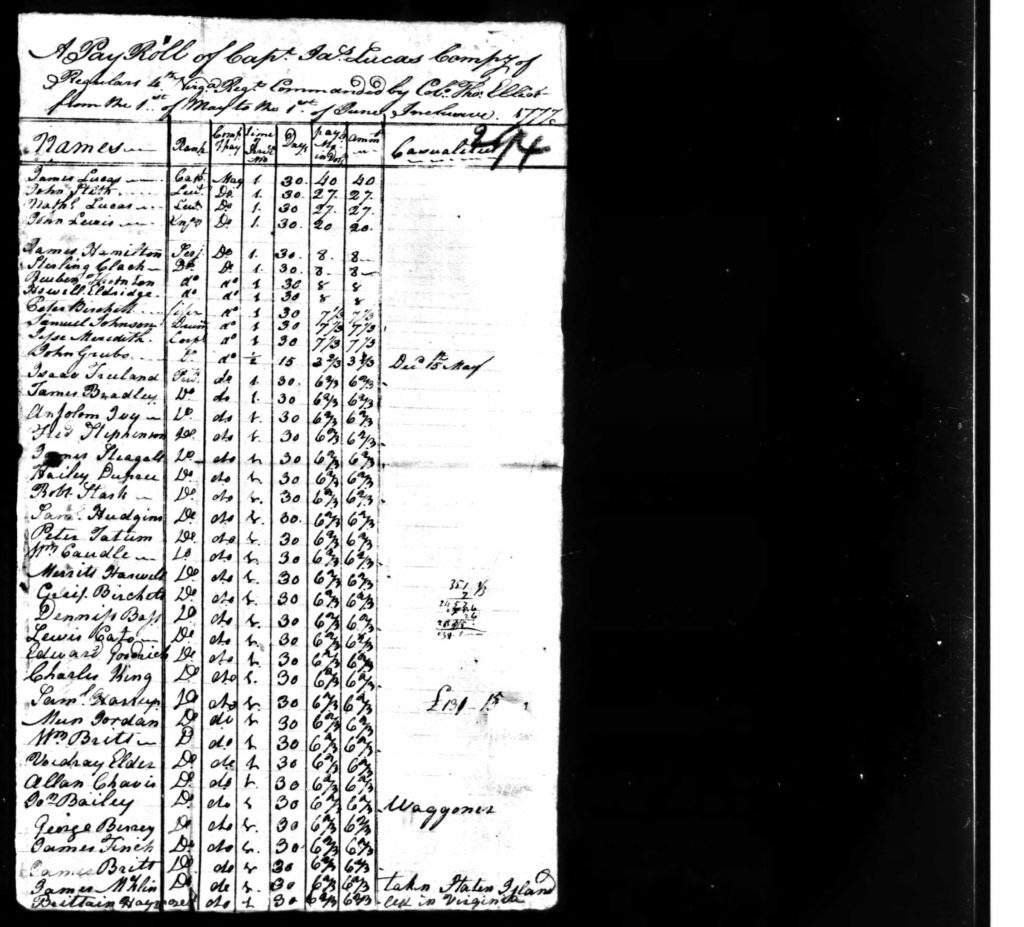 A Pay Roll of Capt. Jas. Lucas Compy of
Regulars 4th Virga Regt. Commanded by Col. Tho. Elliot
from the 1st of May to the 1st of June Inclusive. 1777
Names Rank Time Days pay Ammt Casualities
James Lucas Capt May 1 30 40 40
John Stith Lieut Do. 1. 30 27. 27.
Nathl. Lucas Lieut Do. 1. 30 27. 27.
John Lewis Do. 1. 30. 20 20.
James Hamilton Serj. Do. 1. 30. 8. 8
Sterling Clack Do. Do. 1. 30. 8 8
Reuben Thornton do do 1 30 8 8
Howell Eldridge do do 1 30 8 8
Peter Birchett do 1 30 7 1/3 7 1/3
Samuel Johnson Drum do 1 30 7 1/3 7 1/3
Jesse Meredith Corpl do 1 30 7 1/3 7 1/3
John Grubs do 1/2 15 Ded 15 May
Isaac Ireland do 1. 30. 6 2/3 6 2/3
James Bradley Do do 1. 30. 6 2/3 6 2/3
Ansolom Ivy Do. do 1. 30 6 2/3 6 2/3
Fred Stephenson Do. do 1. 30 6 2/3 6 2/3
James Steagall Do do 1. 30 6 2/3 6 2/3
Hailey Dupree Do. do 1. 30 6 2/3 6 2/3
Robt. Do. do 1. 30 6 2/3 6 2/3
Saml. Hudgins Do. do 1. 30. 6 2/3 6 2/3
Peter Tatum Do. do 1. 30 6 2/3 6 2/3
Wm Caudle Do. do 1. 30 6 2/3 6 2/3
Merritt Do. do 1. 30 6 2/3 6 2/3
Birchett Do. do 1. 30 6 2/3 6 2/3
Denniss Bass Do do 1. 30 6 2/3 6 2/3
Lewis Cato Do. do 1. 30 6 2/3 6 2/3
Edward Goodrich Do. do 1. 30 6 2/3 6 2/3
Charles King Do. do 1. 30 6 2/3 6 2/3
Saml. Do do 1. 30 6 2/3 6 2/3 £131 15
Mun Jordan Do. do 1. 30 6 2/3 6 2/3
Wm Britt D do 1. 30 6 2/3 6 2/3
Elder Do. do 1. 30 6 2/3 6 2/3
Allan Chavis Do. do 1. 30 6 2/3 6 2/3
Jon Bailey Do. do 1. 30 6 2/3 6 2/3 Waggoner
George Berrey Do. do 1. 30 6 2/3 6 2/3
James Finch Do. do 1. 30 6 2/3 6 2/3
James Britt Do. do 1. 30 6 2/3 6 2/3
James Do. do 1. 30 6 2/3 6 2/3 takn Staten Island
Brittain do 1 30 6 2/3 6 2/3 in Virginia